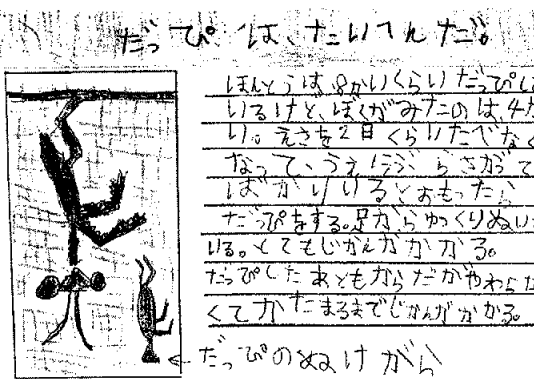 だっぴは、たいへんだ。
ほんとうは、8かいくらいだっぴし
いるけど、ぼくがみたのは、4か
い。えさを2日くらいたべなく
なって、うえにぶらさがって
ばかりいるとおもったら
だっぴをする。足からゆっくりぬい
いる。とてもじかんがかかる。
だっぴしたあともからだがやわらか
くてかたまるまでじかんがかかる。
←だっぴのぬけがら